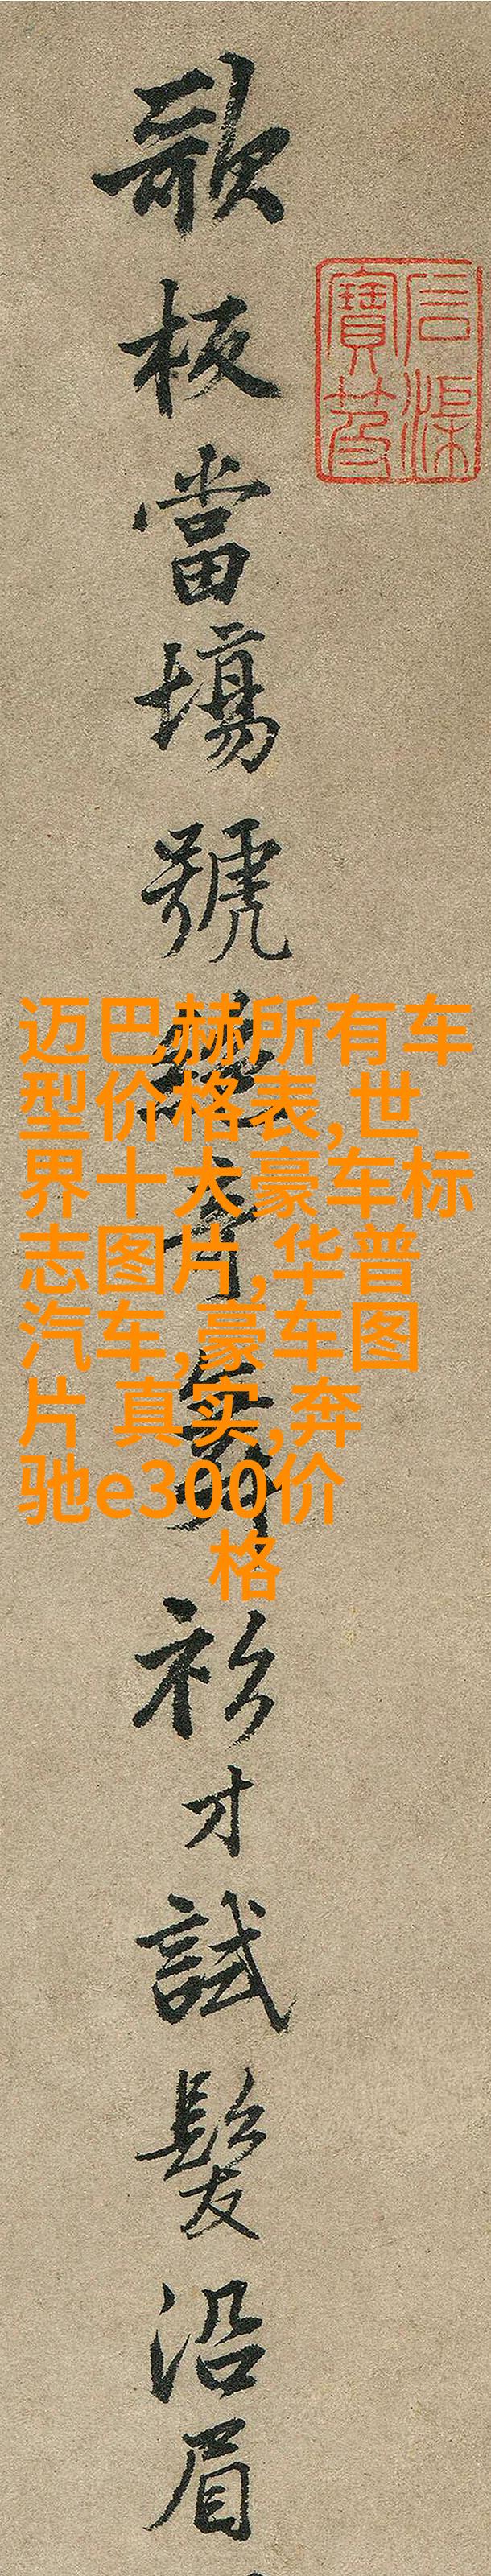 石渠
寶笈
歌板當場號奇衫才試髮沿眉
迈巴赫所有车
型价格表,世
界十大豪车标
志图片,华普
汽车,豪车图
片 真实,奔
驰e300价
格